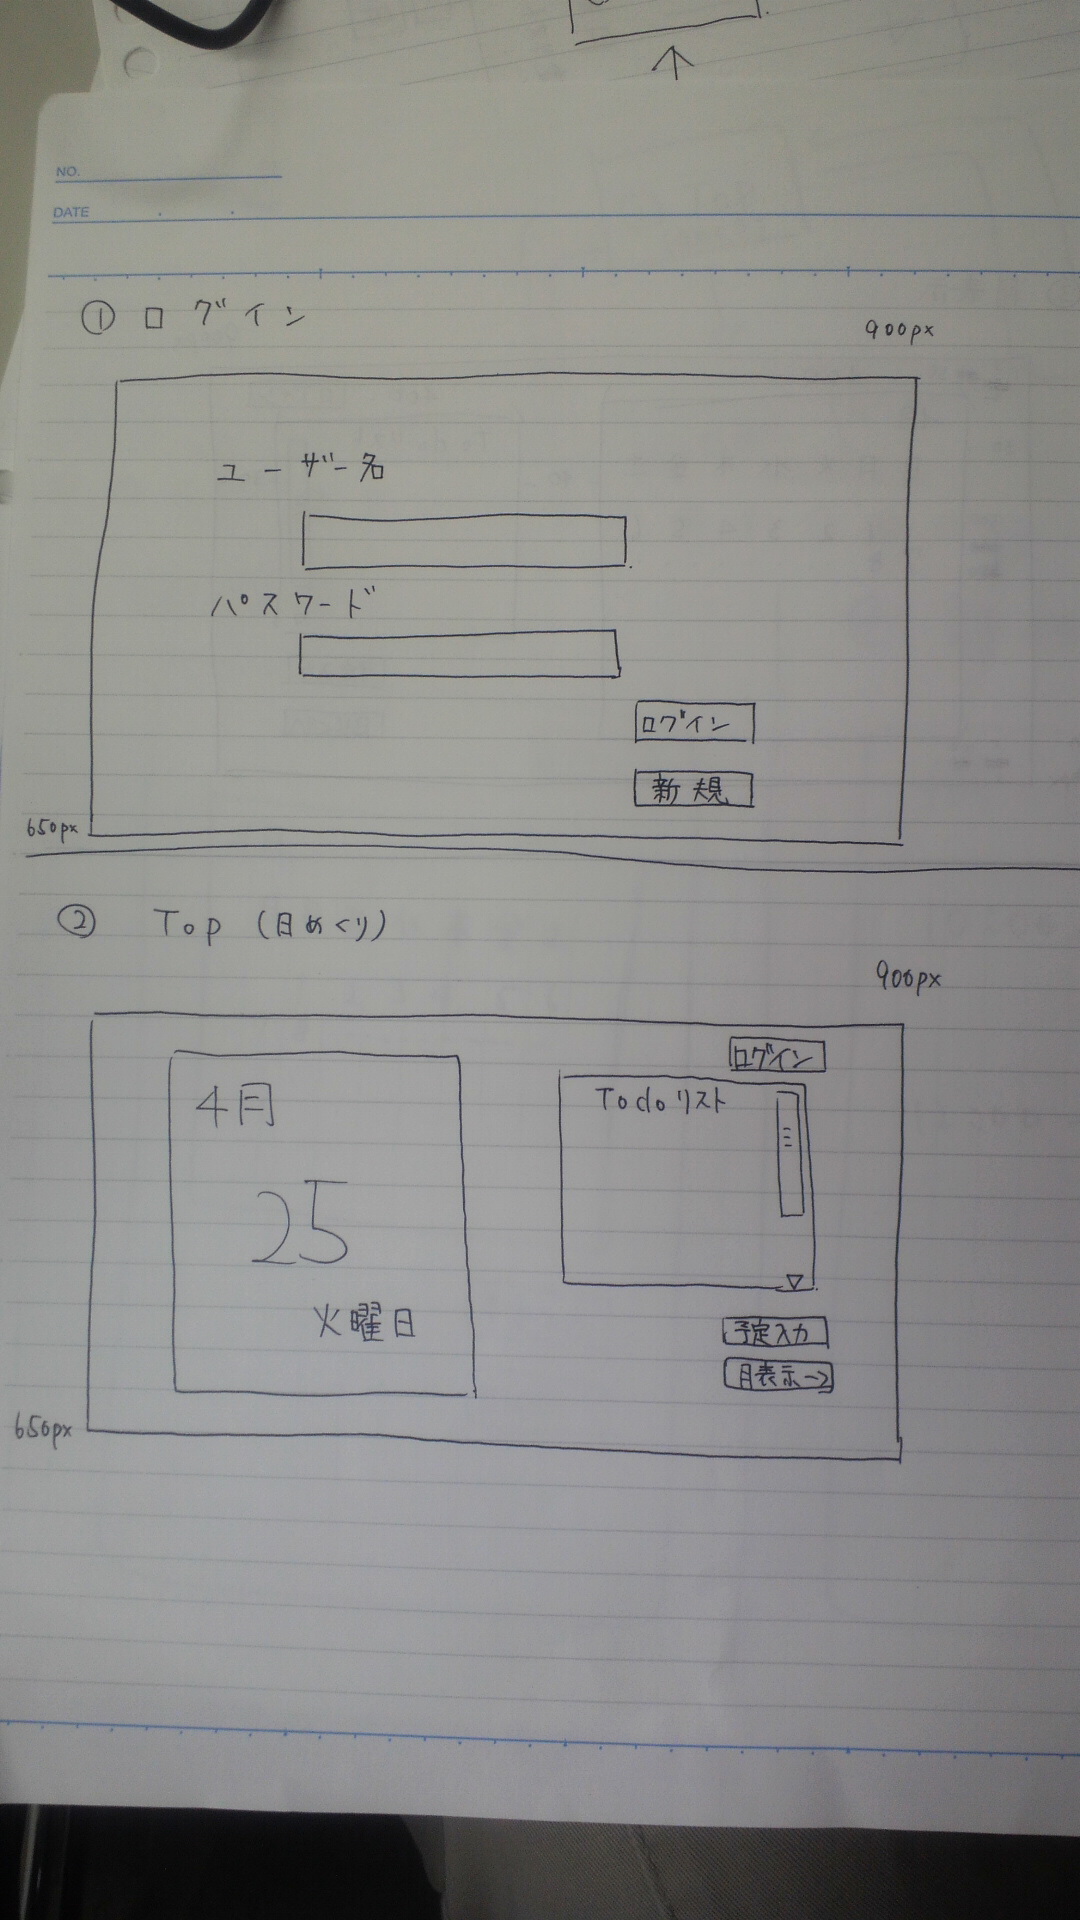 NO.
DATE
① ログイン
900px
ユーザー名
パスワード
ログイン
新規
650px
② Top (日めくり)
900px
ログイン
4月
Todoリスト
25
火曜日
予定入力
月表示→
650px